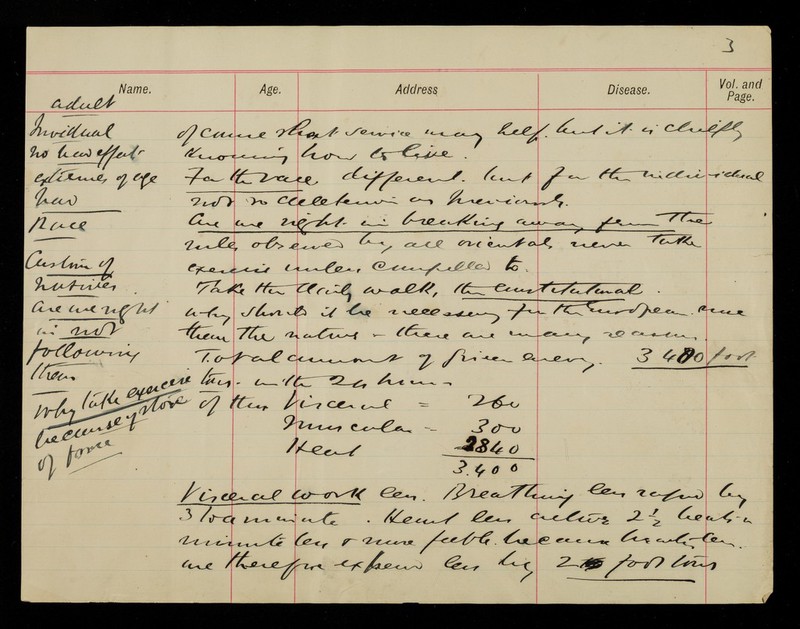 3
Name. Age. Address Disease. Vol. and Page.
adult
Invidual
no bad effects
extremes of age
bad
Race
Custom of
natives
are we right
in not
following
them
Why take exercise
because of store
of force
of course that service may help. but it is chiefly
knowing how to live.
For the race different. but for the individual
not so deleterious as previously.
Are we right in breaking away from the
rules observed by all orientals never take
exercise unless compelled to.
Take the daily walk, the constitutional.
why should it be necessary for the European race
than the natives - there are many reasons.
Total amount of given energy. 3400 foot
tons. in the 24 hours
of this Visceral = 260
Muscular = 300
Heat 2840
3.400
Visceral work less. Breathing less rapid by
3 to a minute. Heart less active 2½ beats a
minute less & more feeble because beats less.
we therefore expend less by 2 foot tons